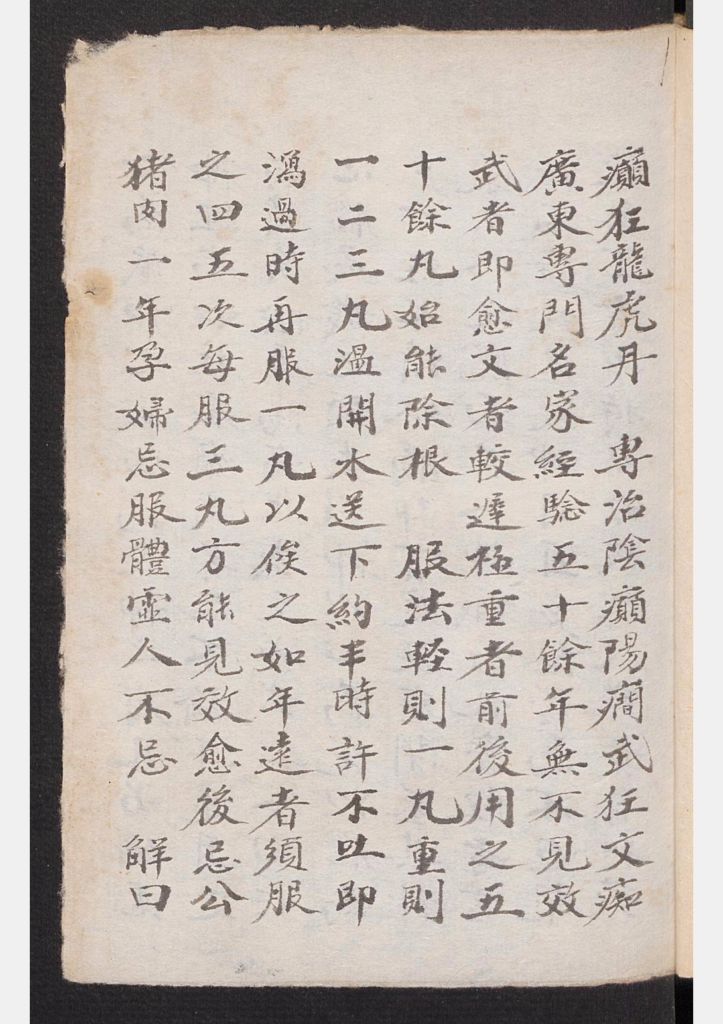 癲狂龍虎丹　專治陰癲陽癎武狂文痴
廣東專門名家經騐五十餘年無不見效
武者即愈文者較遲極重者前後用之五
十餘丸始能除根　服法輕則一丸重則
一二三丸溫開水送下約半時許不吐即
瀉過時再服一丸以俟之如年遠者須服
之四五次每服三丸方能見效愈後忌公
猪肉一年孕婦忌服體虛人不忌　解曰